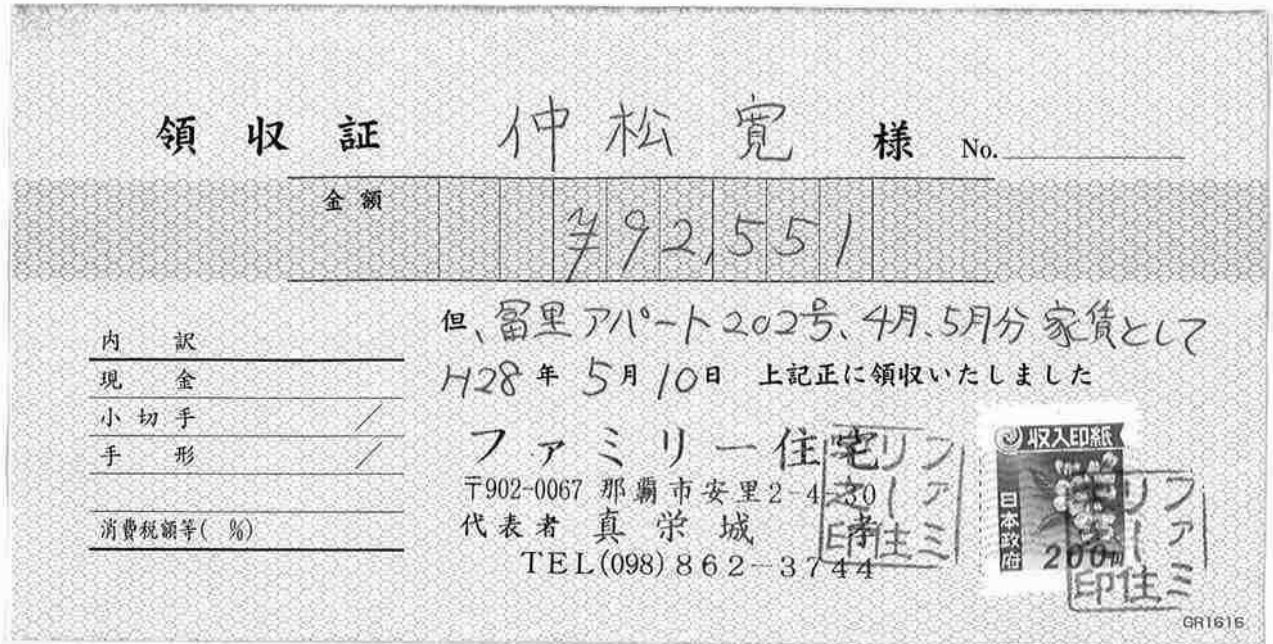 領収証 仲松寛 様 No.
金額 ¥92,551
但、冨里アパート202号、4月、5月分 家賃として
H28年5月10日 上記正に領収いたしました
内訳
現金
小切手 /
手形 /
消費税額等( %)
ファミリー住宅
〒902-0067 那覇市安里2-4-30
代表者 真栄城 孝
TEL(098)862-3744
収入印紙
日本政府
200円
ファミリー住宅印
ファミリー住宅印
GR1616